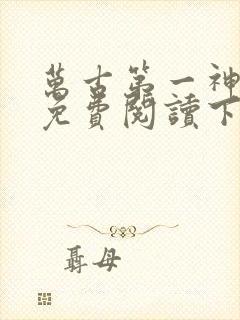 萬古第一神
免費閱讀下
聶母